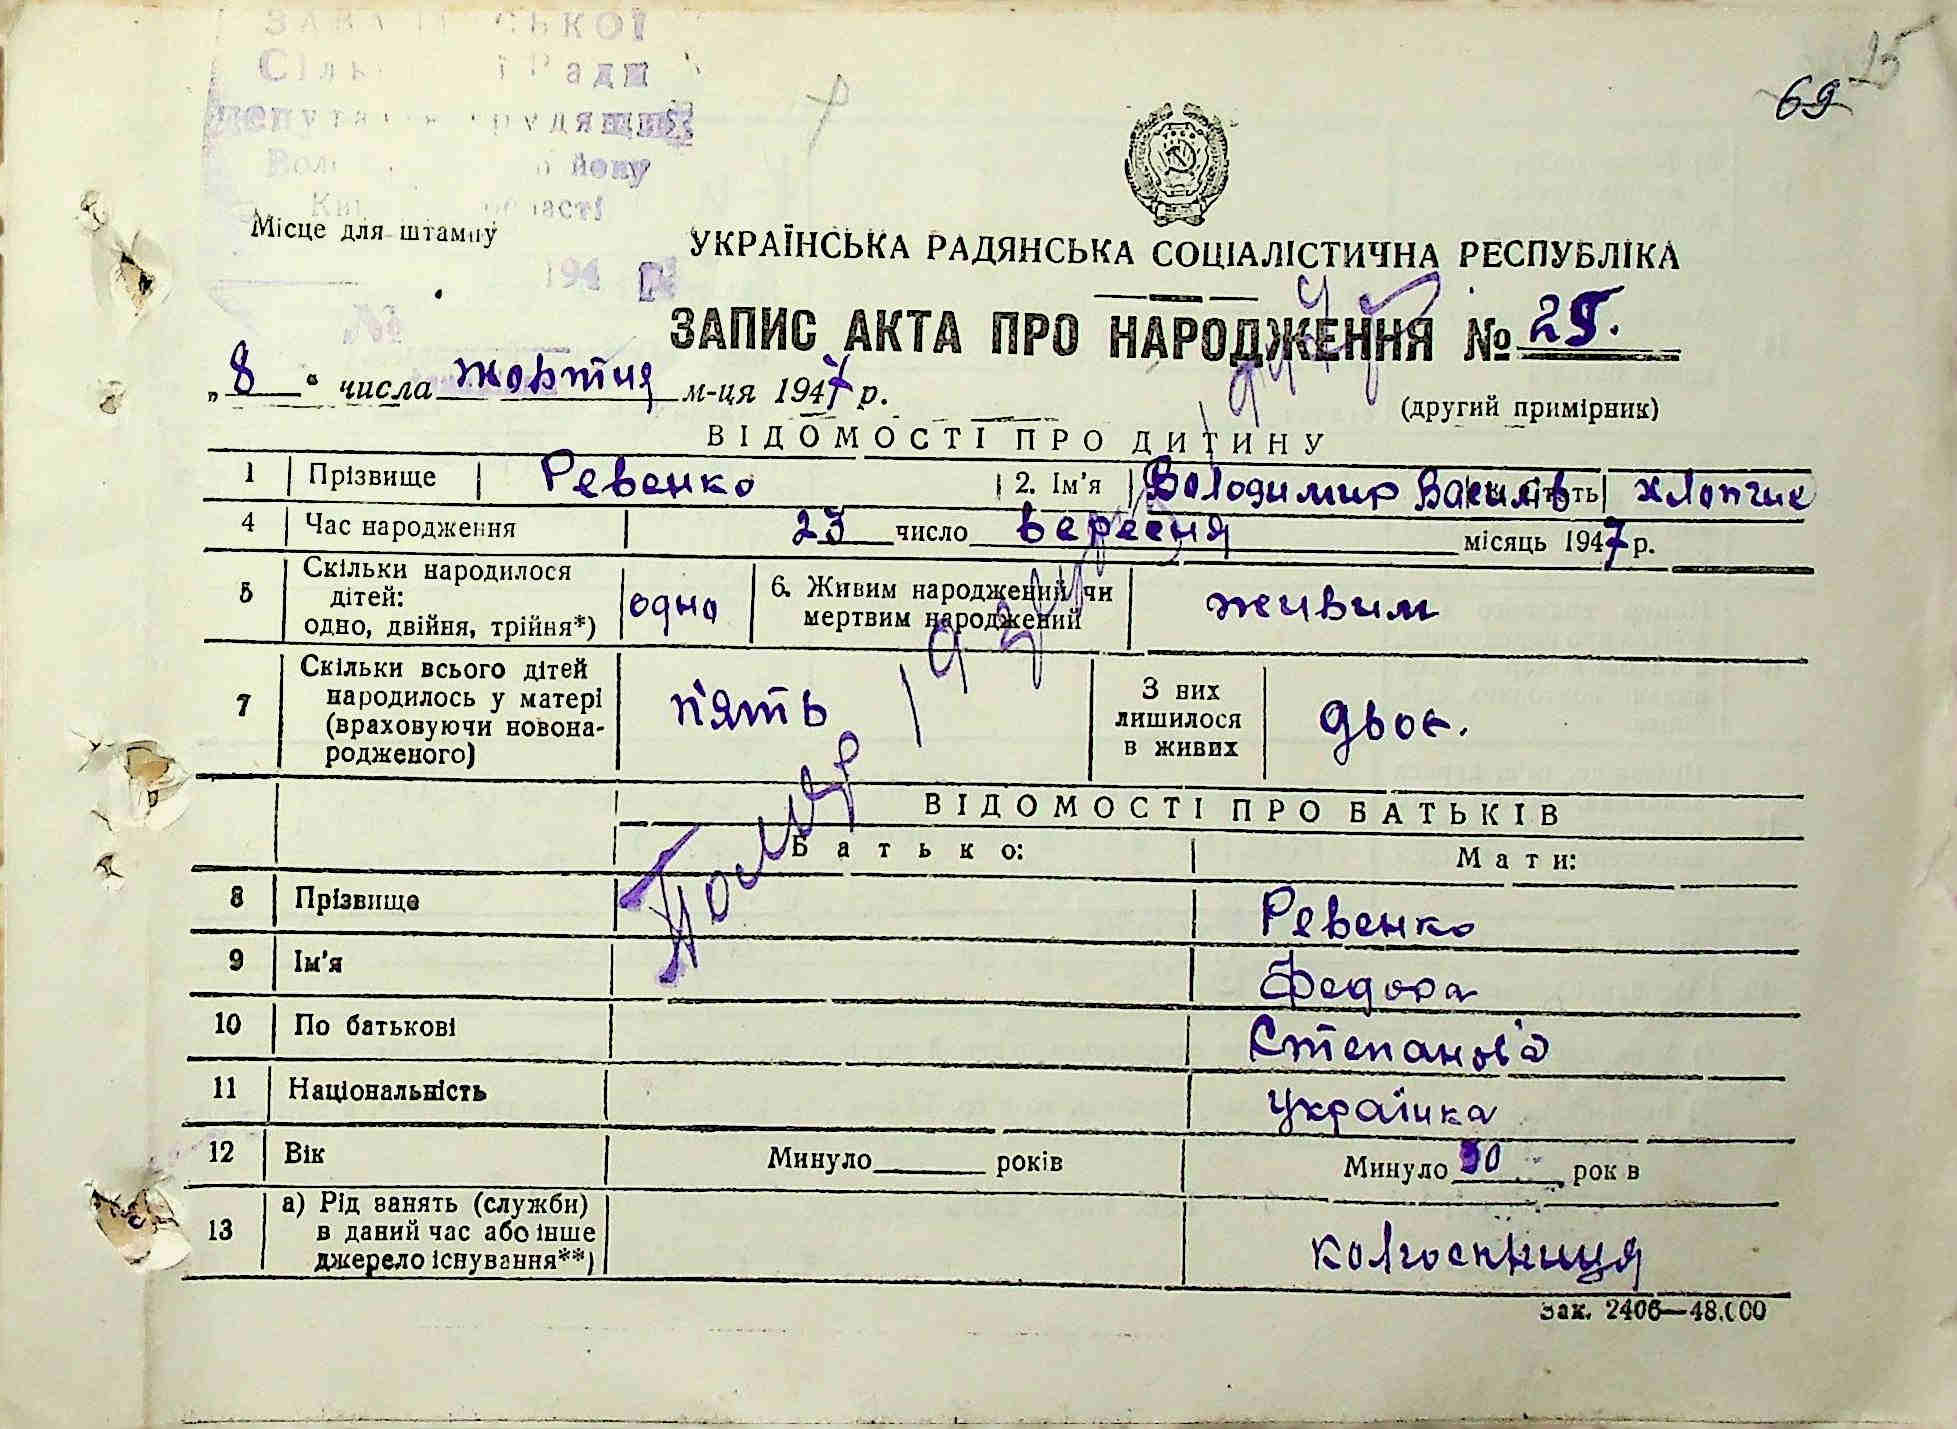 Ради
Місце для штампу
69
25
УКРАЇНСЬКА РАДЯНСЬКА СОЦІАЛІСТИЧНА РЕСПУБЛІКА
ЗАПИС АКТА ПРО НАРОДЖЕННЯ № 25.
„8“ числа жовтня м-ця 1947 р.
(другий примірник)
ВІДОМОСТІ ПРО ДИТИНУ
1 Прізвище Ревенко 2. Ім'я Володимир Василів хлопчик
4 Час народження 23 число вересня місяць 1947 р.
5 Скільки народилося дітей: одно, двійня, трійня*) одно 6. Живим народжений чи мертвим народжений живим
7 Скільки всього дітей народилось у матері (враховуючи новонародженого) п'ять З них лишилося в живих двоє.
Помер
ВІДОМОСТІ ПРО БАТЬКІВ
Батько: Мати:
8 Прізвище Ревенко
9 Ім'я Федора
10 По батькові Степанов'а
11 Національність українка
12 Вік Минуло років Минуло 30 рок в
13 а) Рід занять (служби) в даний час або інше джерело існування**) колгоспниця
Зак. 2406—48.000